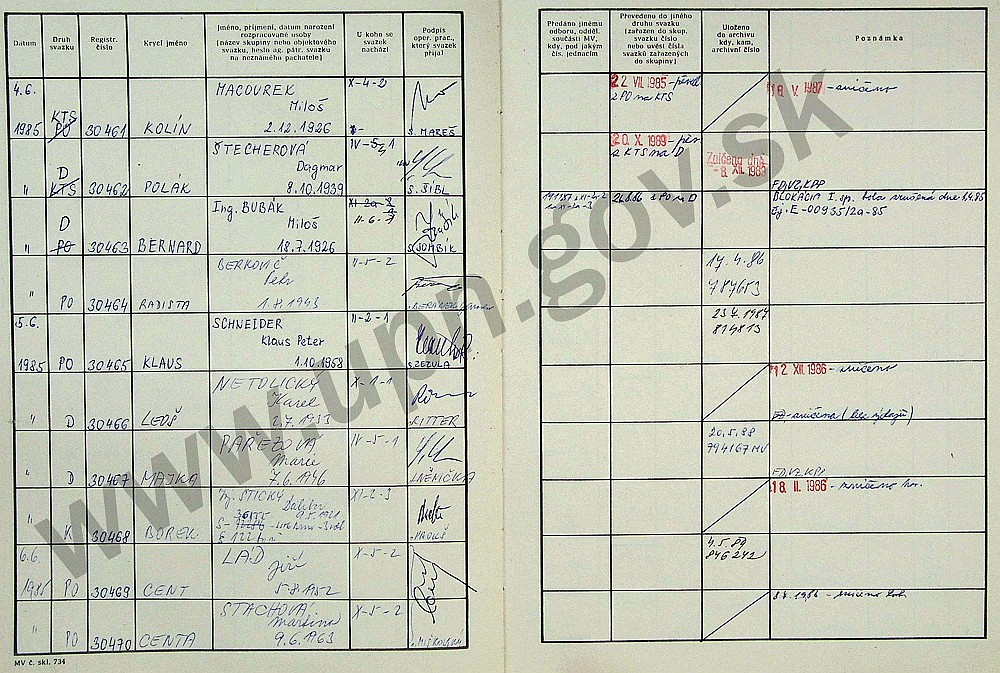 Datum
Druh
svazku
Registr.
číslo
Krycí jméno
Jméno, příjmení, datum narození
rozpracované osoby
(název skupiny nebo objektového
svazku, heslo ag. pátr. svazku
na neznámého pachatele)
U koho se
svazek
nachází
Podpis
oper. prac.,
který svazek
přijal
Předáno jinému
odboru, odděl.
součásti MV,
kdy, pod jakým
čís. jednacím
Převedeno do jiného
druhu svazku
(zařazen do skup.
svazku číslo
nebo uvést čísla
svazků zařazených
do skupiny)
Uloženo
do archivu
kdy, kam,
archivní číslo
Poznámka
4.6.
1985 KTS PO 30461 KOLÍN
MACOUREK
Miloš
2.12.1926
X-4-2
S. MAREŠ
22. VII. 1985 - převed
z PO na KTS
18. V. 1987 - zničeno
" D KTS 30462 POLÁK
ŠTECHEROVÁ
Dagmar
8.10.1939
IV-5-1
S. ŠÍBL
20. X. 1989 - přev
z KTS na D
Zničeno dne
- 8. XII. 1989
" D PO 30463 BERNARD
Ing. BUBÁK
Miloš
18.7.1926
z PO na D
FD, VZ, KPP
BLOKÁCIA I. sp. bola zrušená dne
čj. E-00935/2a-85
" PO 30464 RADISTA
BERKOVIČ
Petr
1.8.1943
II-5-2
17.4.86
787653
5.6.
1985 PO 30465 KLAUS
SCHNEIDER
Klaus Peter
1.10.1958
II-2-1
S. ZEZULA
814813
" D 30466 LEOŠ
NETOLICKÝ
Karel
2.7.1933
X-1-1
RITTER
12. XII. 1986 - zničeno
" D 30467 MAJKA
PAREZOVÁ
Marie
7.6.1946
IV-5-1
NĚMIČKA
20.5.88
794167 MV
FD, VZ, KPP
" K 30468 BOREK
STICKÝ
Dalibor
9.5.1921
XI-2-3
18. II. 1986 - zničeno
6.6.
1985 PO 30469 CENT
LÁD
Jiří
5.8.1952
X-5-2
846242
" PO 30470 CENTA
STACHOVÁ
Martina
9.6.1963
X-5-2
MV č. skl. 734
www.upn.gov.sk